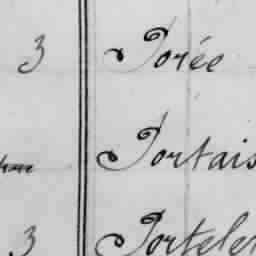 3 Porée
Portais
3 Portelet